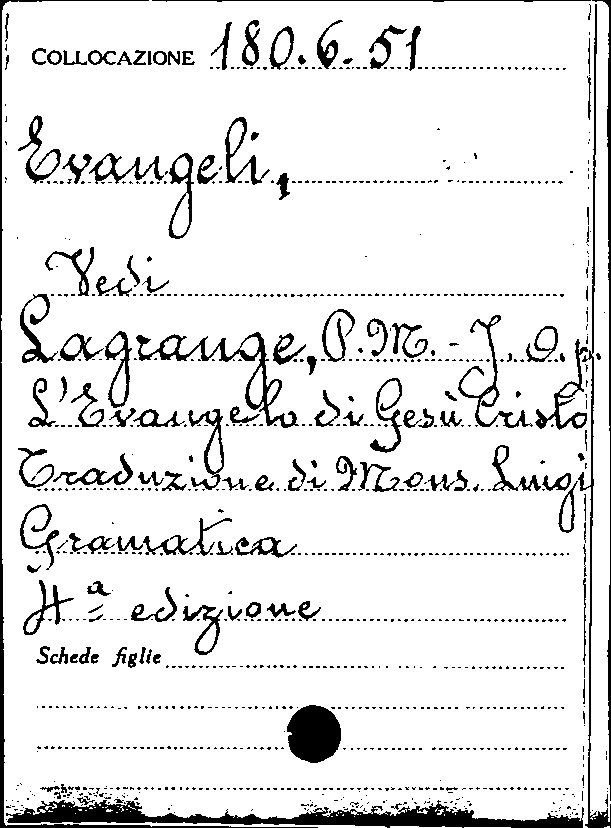 COLLOCAZIONE 180.6.51
Evangeli,
Vedi
Lagrange, P. M. - J. O. p.
L'Evangelo di Gesù Cristo
Traduzione di Mons. Luigi
Gramatica
4ª edizione
Schede figlie